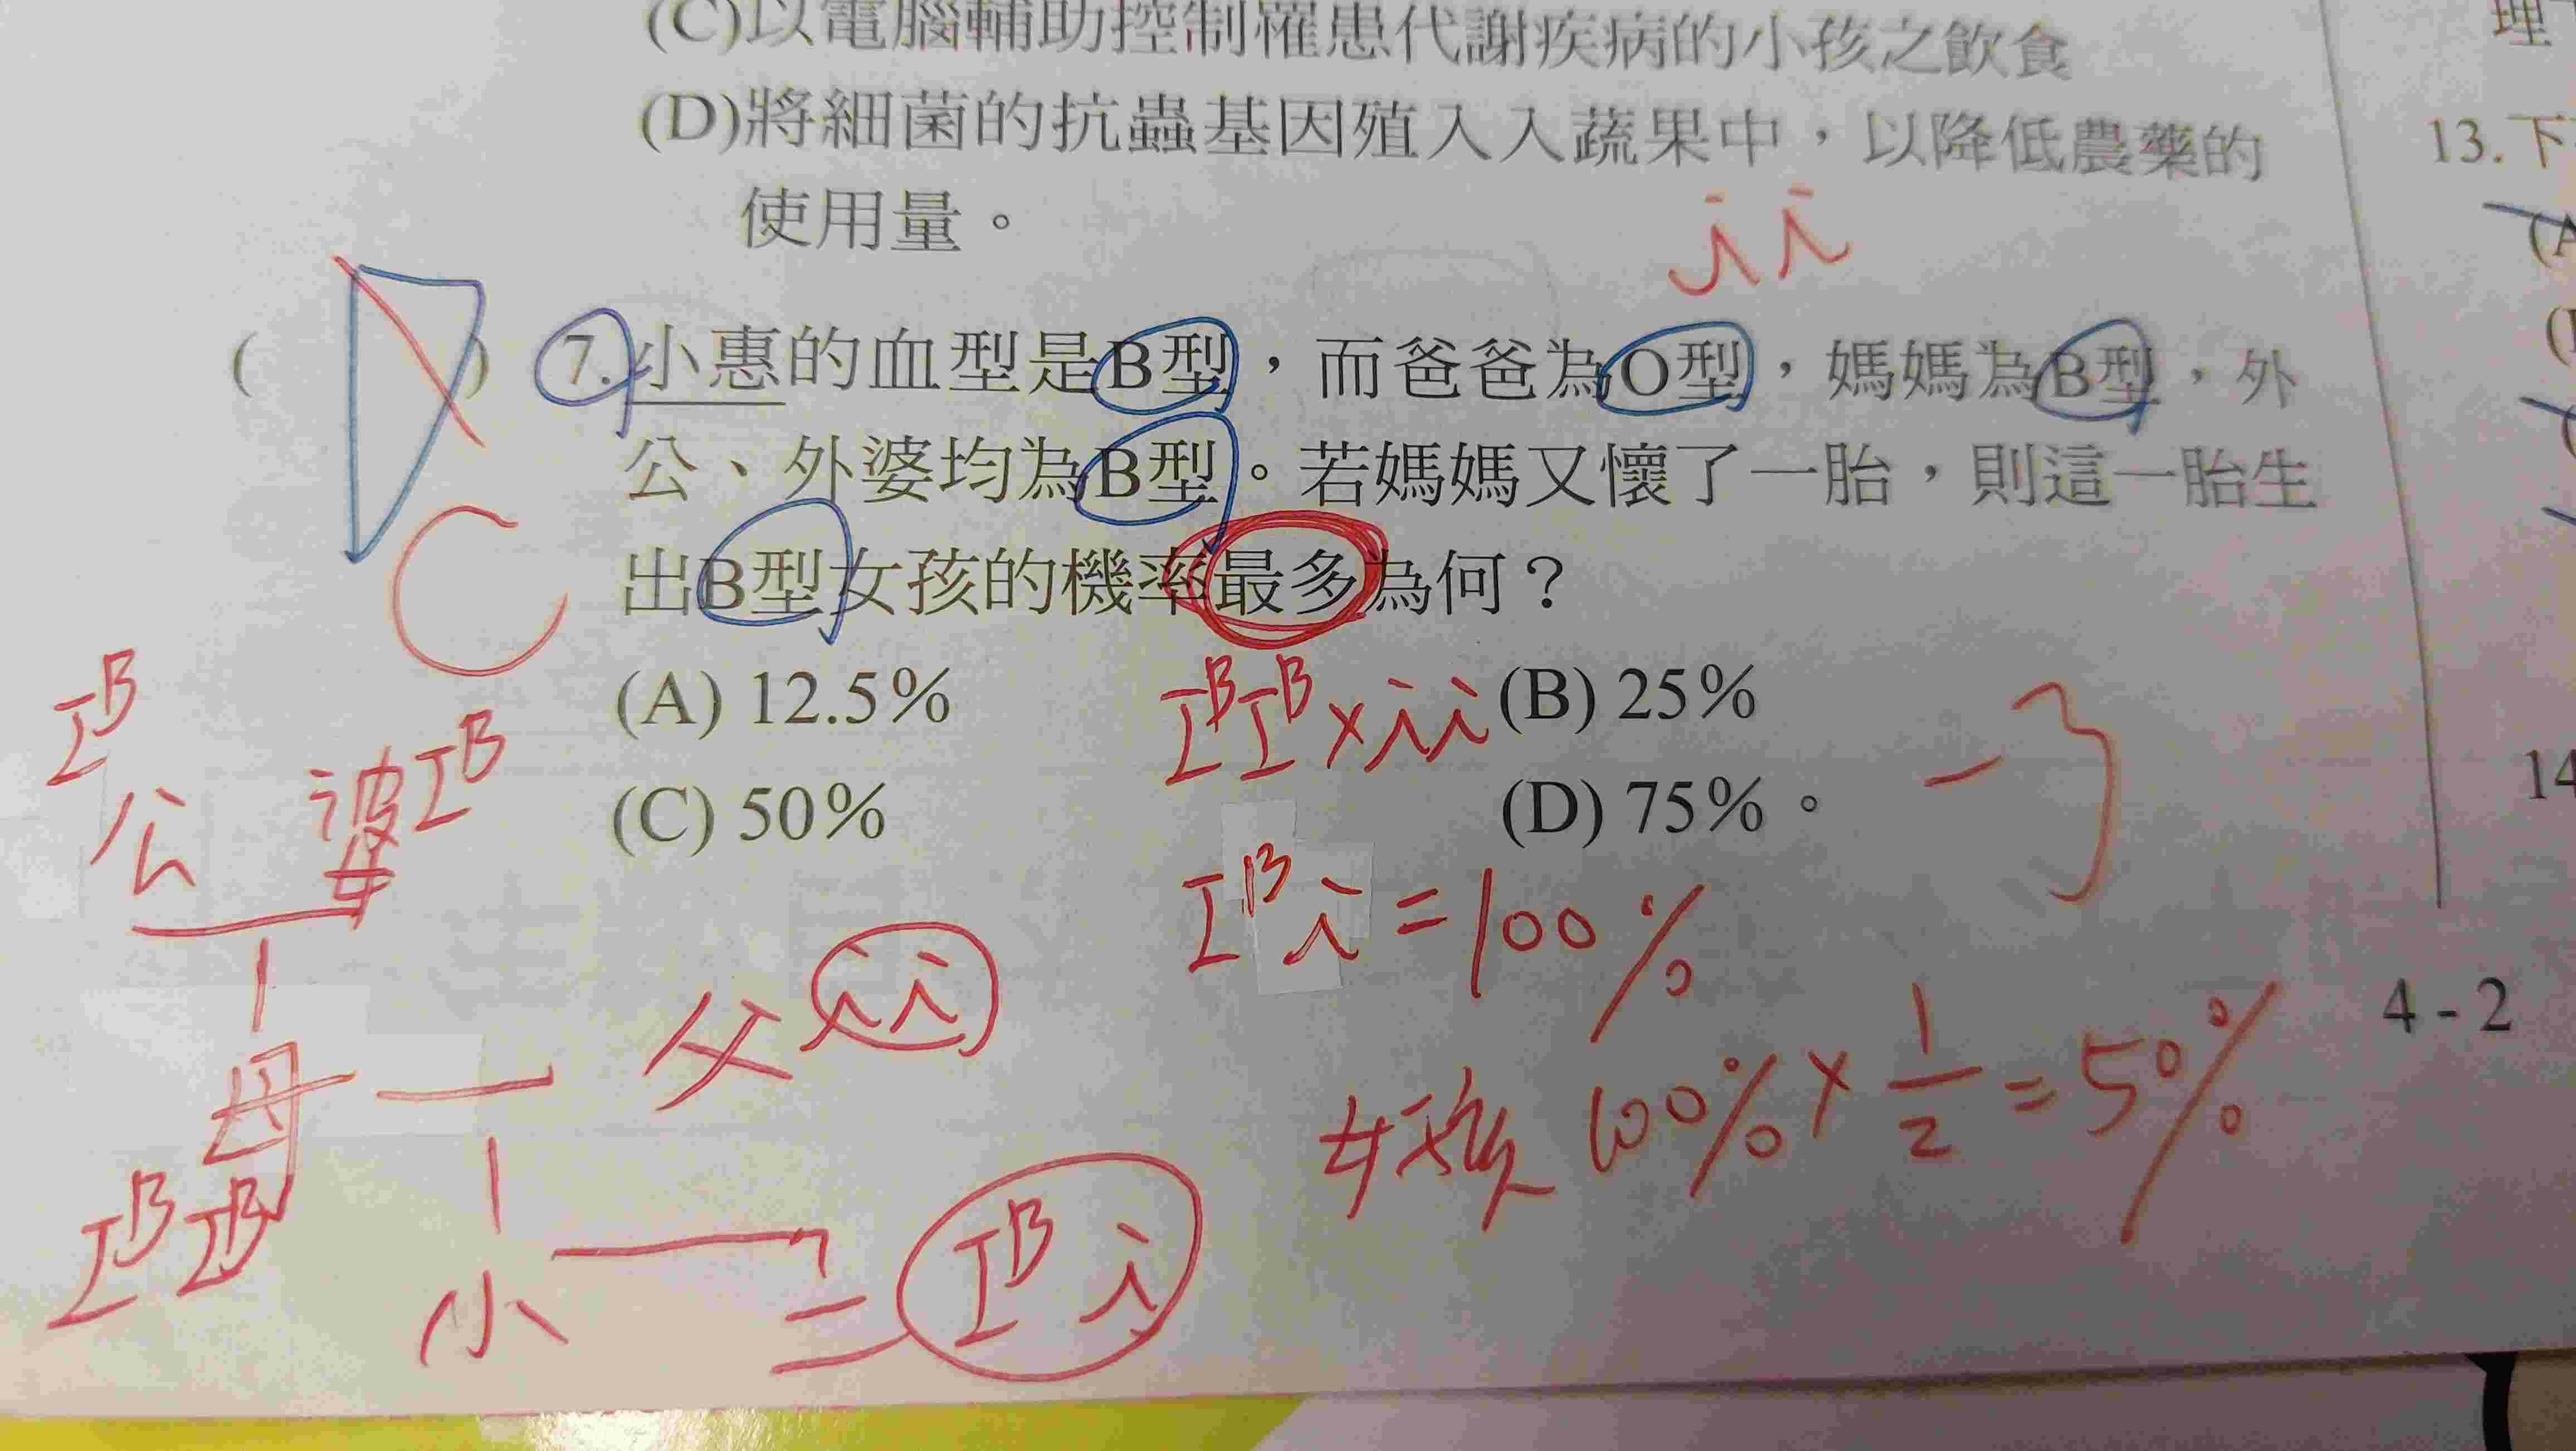 (C)以電腦輔助控制罹患代謝疾病的小孩之飲食
(D)將細菌的抗蟲基因殖入入蔬果中，以降低農藥的
使用量。
ii
( D ) 7.小惠的血型是B型，而爸爸為O型，媽媽為B型，外
公、外婆均為B型。若媽媽又懷了一胎，則這一胎生
出B型女孩的機率最多為何？
C
(A) 12.5%
(B) 25%
(C) 50%
(D) 75%。
I^B I^B × ii
-3
I^B i = 100%
女孩 100% × 1/2 = 50%
I^B
公 婆 I^B
母 父 ii
I^B I^B
小 = I^B i
理
13. 下
(A
14
4 - 2